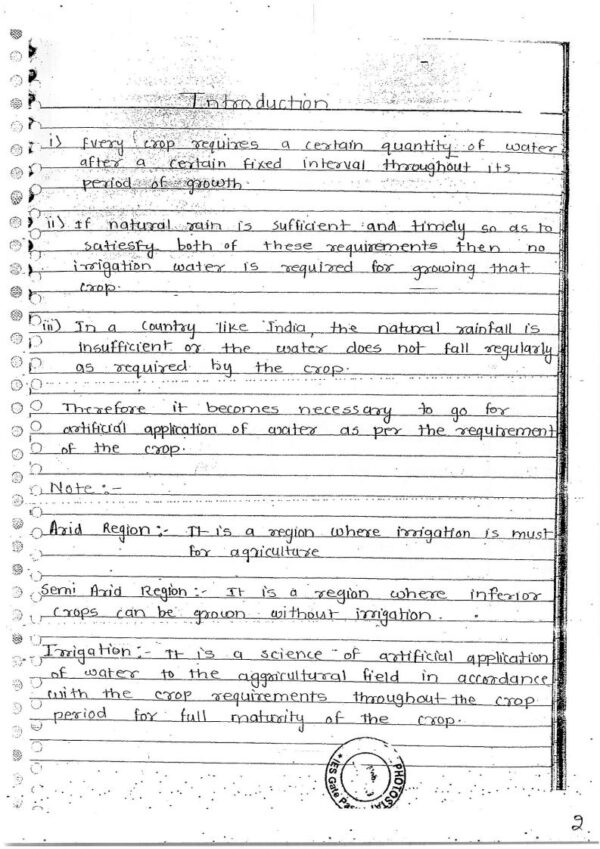 Introduction
i) Every crop requires a certain quantity of water
after a certain fixed interval throughout its
period of growth.
ii) If natural rain is sufficient and timely so as to
satiesfy both of these requirements then no
irrigation water is required for growing that
crop.
iii) In a country like India, the natural rainfall is
insufficient or the water does not fall regularly
as required by the crop.
Therefore it becomes necessary to go for
artificial application of water as per the requirement
of the crop.
Note :-
Arid Region :- It is a region where irrigation is must
for agriculture
Semi Arid Region :- It is a region where inferior
crops can be grown without irrigation.
Irrigation :- It is a science of artificial application
of water to the aggricultural field in accordance
with the crop requirements throughout the crop
period for full maturity of the crop.
PHOTOSTA
IES Gate
2